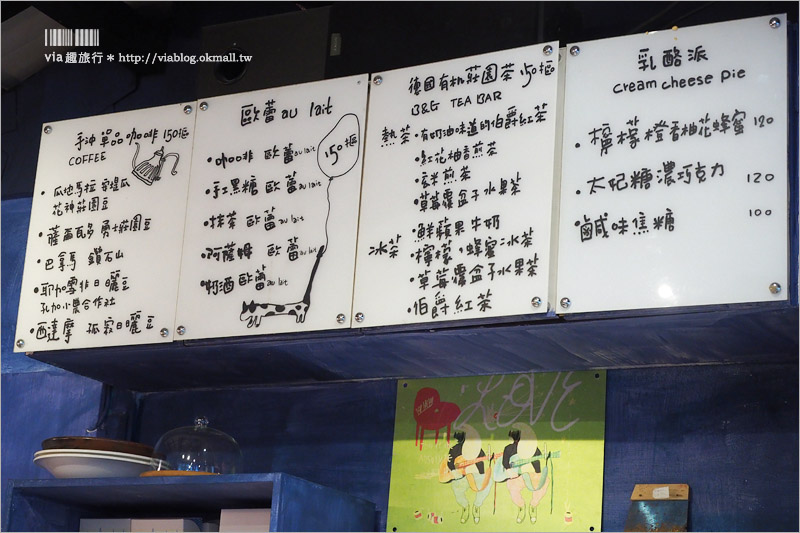 via 趣旅行＊http://viablog.okmall.tw
手沖單品咖啡 150摳
COFFEE
• 瓜地馬拉 安堤瓜
花神莊園豆
• 薩爾瓦多 勇士莊園豆
• 巴拿馬 鑽石山
• 耶加雪菲日曬豆
孔加小農合作社
• 西達摩 孤寂日曬豆
歐蕾au lait
150摳
• 咖啡 歐蕾au lait
• 手工黑糖 歐蕾au lait
• 抹茶 歐蕾au lait
• 阿薩姆 歐蕾au lait
歐蕾au lait
德國有机莊園茶 150摳
B&G TEA BAR
熱茶 • 有奶油味道的伯爵紅茶
• 紅花柚香煎茶
• 玄米煎茶
• 草莓覆盆子水果茶
• 鮮蘋果牛奶
冰茶 • 檸檬、蜂蜜冰茶
• 草莓覆盆子水果茶
• 伯爵紅茶
乳酪派
cream cheese pie
• 檸檬橙香柚花蜂蜜 120
• 太妃糖濃巧克力 120
• 鹹味焦糖 100
LOVE